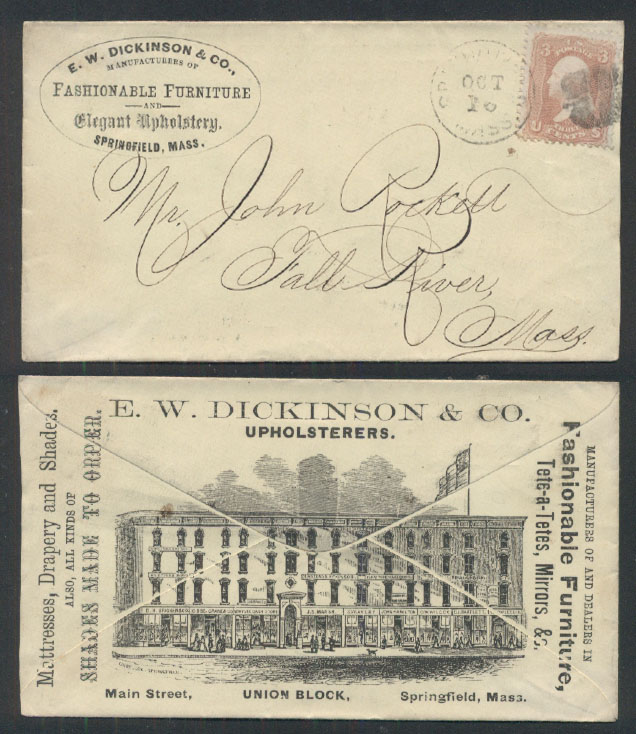 E. W. DICKINSON & CO.,
MANUFACTURERS OF
FASHIONABLE FURNITURE
AND
Elegant Upholstery.
SPRINGFIELD, MASS.
OCT
16
MASS
3 U.S. 3
POSTAGE
U THREE S
CENTS
Mr. John Rockett
Fall River,
Mass.
E. W. DICKINSON & CO.
UPHOLSTERERS.
Mattresses, Drapery and Shades.
ALSO, ALL KINDS OF
SHADES MADE TO ORDER.
MANUFACTURERS OF AND DEALERS IN
Fashionable Furniture,
Tete-a-Tetes, Mirrors, &c.
Main Street, UNION BLOCK, Springfield, Mass.